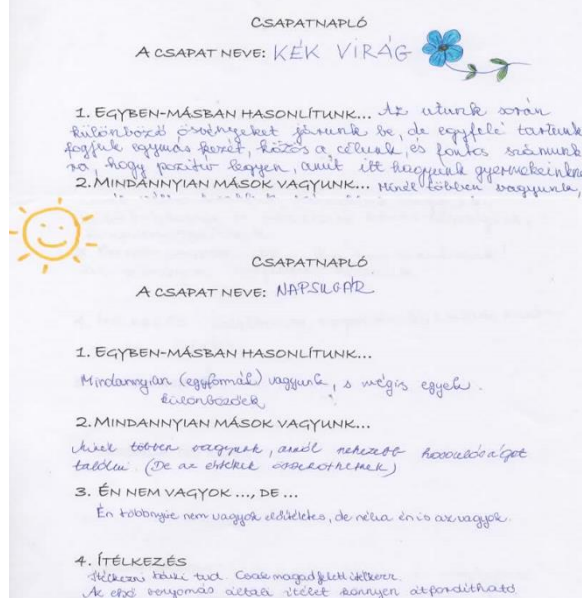 CSAPATNAPLÓ
A CSAPAT NEVE: KÉK VIRÁG
1. EGYBEN-MÁSBAN HASONLÍTUNK... Az utunk során
különböző ösvényeket járunk be, de egyfelé tartunk
fogjuk egymás kezét, közös a célunk, és fontos számunk
ra, hogy pozitív legyen, amit itt hagyunk gyermekeinkne
2. MINDANNYIAN MÁSOK VAGYUNK... Minél többen vagyunk,
CSAPATNAPLÓ
A CSAPAT NEVE: NAPSUGÁR
1. EGYBEN-MÁSBAN HASONLÍTUNK...
Mindannyian (egyformák) vagyunk, s mégis egyek.
különbözőek
2. MINDANNYIAN MÁSOK VAGYUNK...
Minél többen vagyunk, annál nehezebb hasonlóságot
találni (De az értékek összeköthetnek)
3. ÉN NEM VAGYOK ..., DE ...
Én többnyire nem vagyok előítéletes, de néha én is az vagyok.
4. ÍTÉLKEZÉS
Ítélkezni bárki tud. Csak magad felett ítélkezz.
Az első benyomás általi ítélet könnyen átfordítható